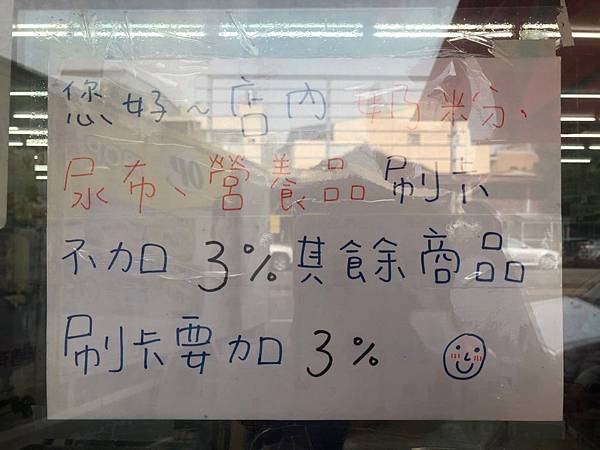 您好~店內 奶粉、
尿布、營養品刷卡
不加 3%其餘商品
刷卡要加 3%